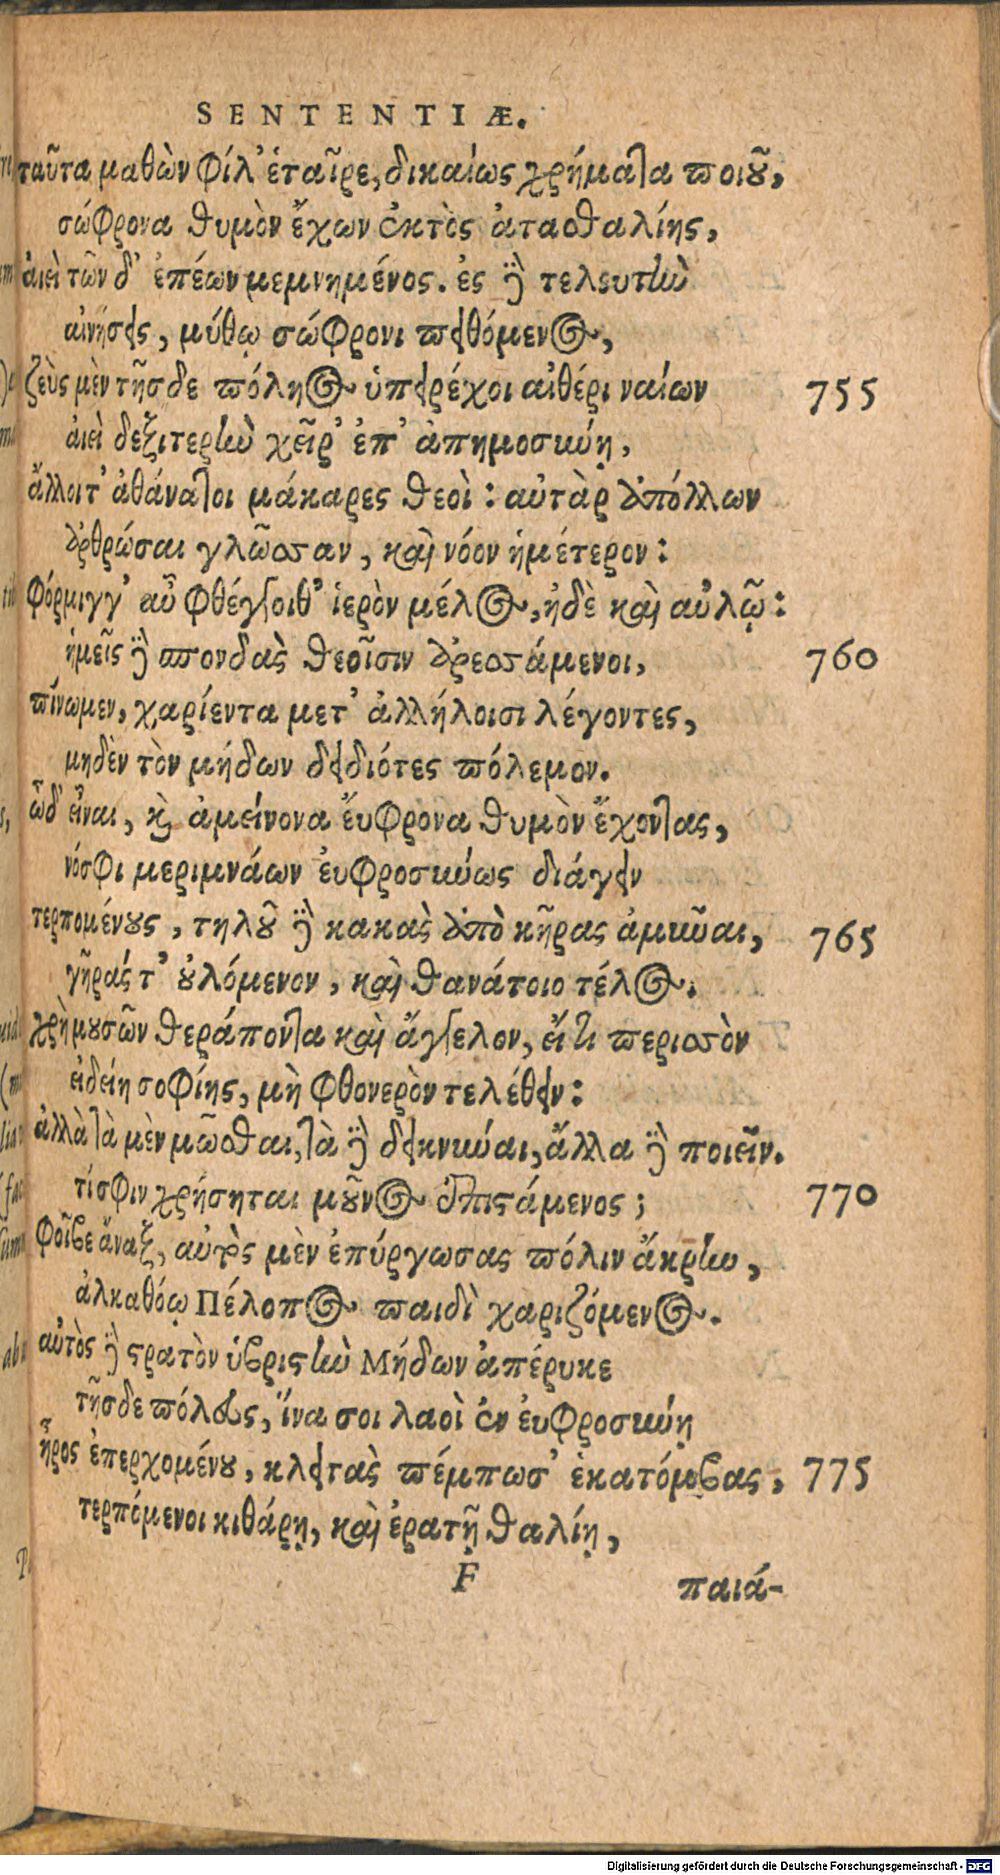 SENTENTIÆ.
ταῦτα μαθὼν φίλ' ἑταῖρε, δικαίως χρήματα ποιοῦ,
σώφρονα θυμὸν ἔχων ἐκτὸς ἀτασθαλίης,
αἰεὶ τῶν δ' ἐπέων μεμνημένος. ἐς δὲ τελευτὴν
αἰνήσεις, μύθῳ σώφρονι πειθόμενος,
ζεὺς μὲν τῆσδε πόληος ὑπειρέχοι αἰθέρι ναίων 755
αἰεὶ δεξιτερὴν χεῖρ' ἐπ' ἀπημοσύνῃ,
ἄλλοιτ' ἀθάνατοι μάκαρες θεοὶ: αὐτὰρ ἀπόλλων
ὀρθρώσαι γλῶσσαν, καὶ νόον ἡμέτερον:
φόρμιγγ' αὖ φθέγγοιθ' ἱερὸν μέλος, ἠδὲ καὶ αὐλῷ:
ἡμεῖς δὲ σπονδὰς θεοῖσιν ἀρεσσάμενοι, 760
πίνωμεν, χαρίεντα μετ' ἀλλήλοισι λέγοντες,
μηδὲν τὸν μήδων δειδιότες πόλεμον.
ὧδ' εἶναι, καὶ ἀμείνονα ἔυφρονα θυμὸν ἔχοντας,
νόσφι μεριμνάων ἐυφροσύνως διάγειν
τερπομένους, τηλοῦ δὲ κακὰς ἀπὸ κῆρας ἀμῦναι, 765
γῆράς τ' οὐλόμενον, καὶ θανάτοιο τέλος.
χρὴ μουσῶν θεράποντα καὶ ἄγγελον, εἴ τι περισσὸν
εἰδείη σοφίης, μὴ φθονερὸν τελέθειν:
ἀλλὰ τὰ μὲν μῶσθαι, τὰ δὲ δεικνύναι, ἄλλα δὲ ποιεῖν.
τί σφιν χρήσηται μοῦνος ἐπιστάμενος; 770
Φοῖβε ἄναξ, αὐτὸς μὲν ἐπύργωσας πόλιν ἄκρην,
ἀλκαθόῳ Πέλοπος παιδὶ χαριζόμενος.
αὐτὸς δὲ στρατὸν ὑβριστὴν Μήδων ἀπέρυκε
τῆσδε πόλευς, ἵνα σοι λαοὶ ἐν ἐυφροσύνῃ
ἦρος ἐπερχομένου, κλειτὰς πέμπωσ' ἑκατόμβας, 775
τερπόμενοι κιθάρῃ, καὶ ἐρατῇ θαλίῃ,
F παιά-
Digitalisierung gefördert durch die Deutsche Forschungsgemeinschaft - DFG